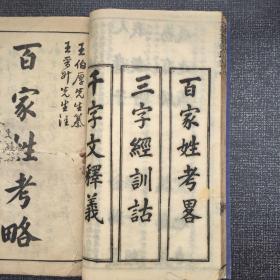 百家姓考畧
三字經訓詁
千字文釋義
王伯厚先生纂
王晉升先生注
百家姓考略